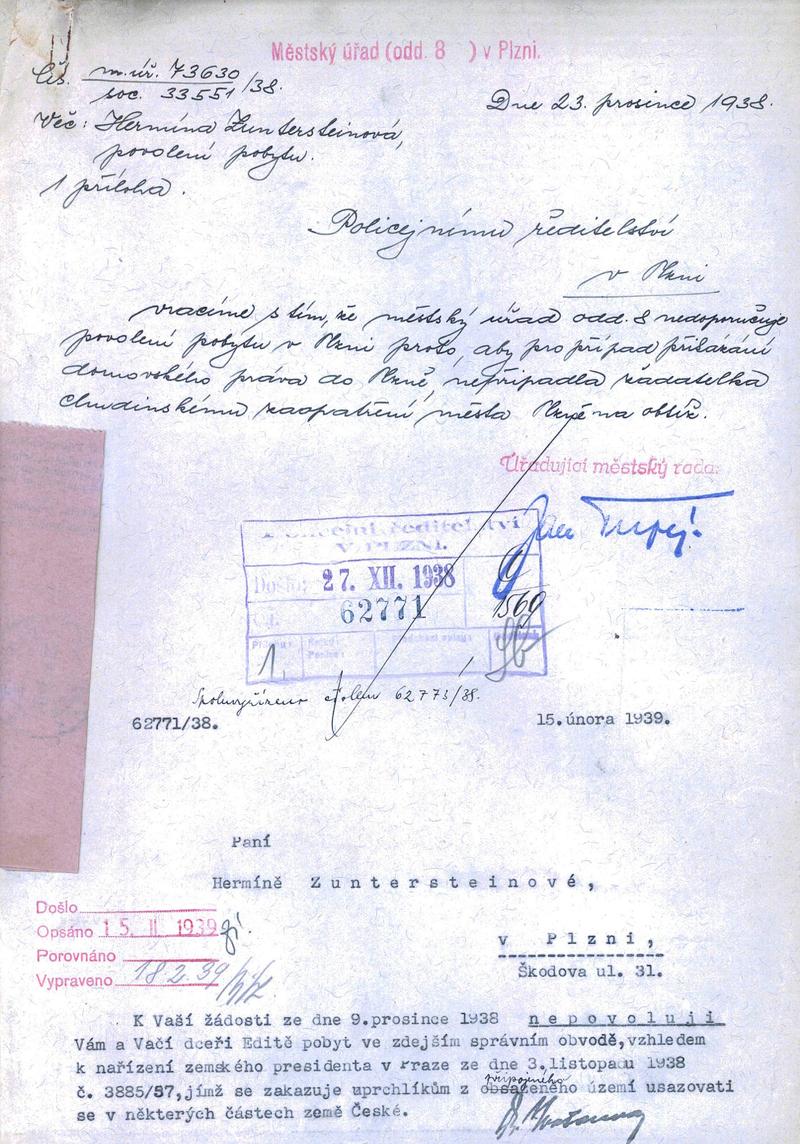 Městský úřad (odd. 8 ) v Plzni.
Čís. m.úř. 73630
soc. 33551 /38.
Dne 23. prosince 1938.
Věc: Hermína Zuntersteinová,
povolení pobytu.
1 příloha.
Policejnímu ředitelství
v Plzni
vracíme s tím, že městský úřad odd. 8 nedoporučuje
povolení pobytu v Plzni proto, aby pro případ přikázání
domovského práva do Plzně, nepřipadla žadatelka
chudinskému zaopatření města Plzně na obtíž.
Úřadující městský rada:
Policejní ředitelství
V PLZNI.
Došlo: 27. XII. 1938
Čj. 62771
1569
1
Spoluvyřízeno s čslem 62773/38.
62771/38.
15.února 1939.
Paní
Hermíně Zuntersteinové,
v Plzni,
Škodova ul. 31.
Došlo
Opsáno 15. II. 1939
Porovnáno
Vypraveno 18 2. 39
K Vaší žádosti ze dne 9.prosince 1938 nepovoluji
Vám a Vačí dceři Editě pobyt ve zdejším správním obvodě,vzhledem
k nařízení zemského presidenta v Praze ze dne 3.listopadu 1938
připojeného
č. 3885/57,jímž se zakazuje uprchlíkům z obsazeného území usazovati
se v některých částech země České.